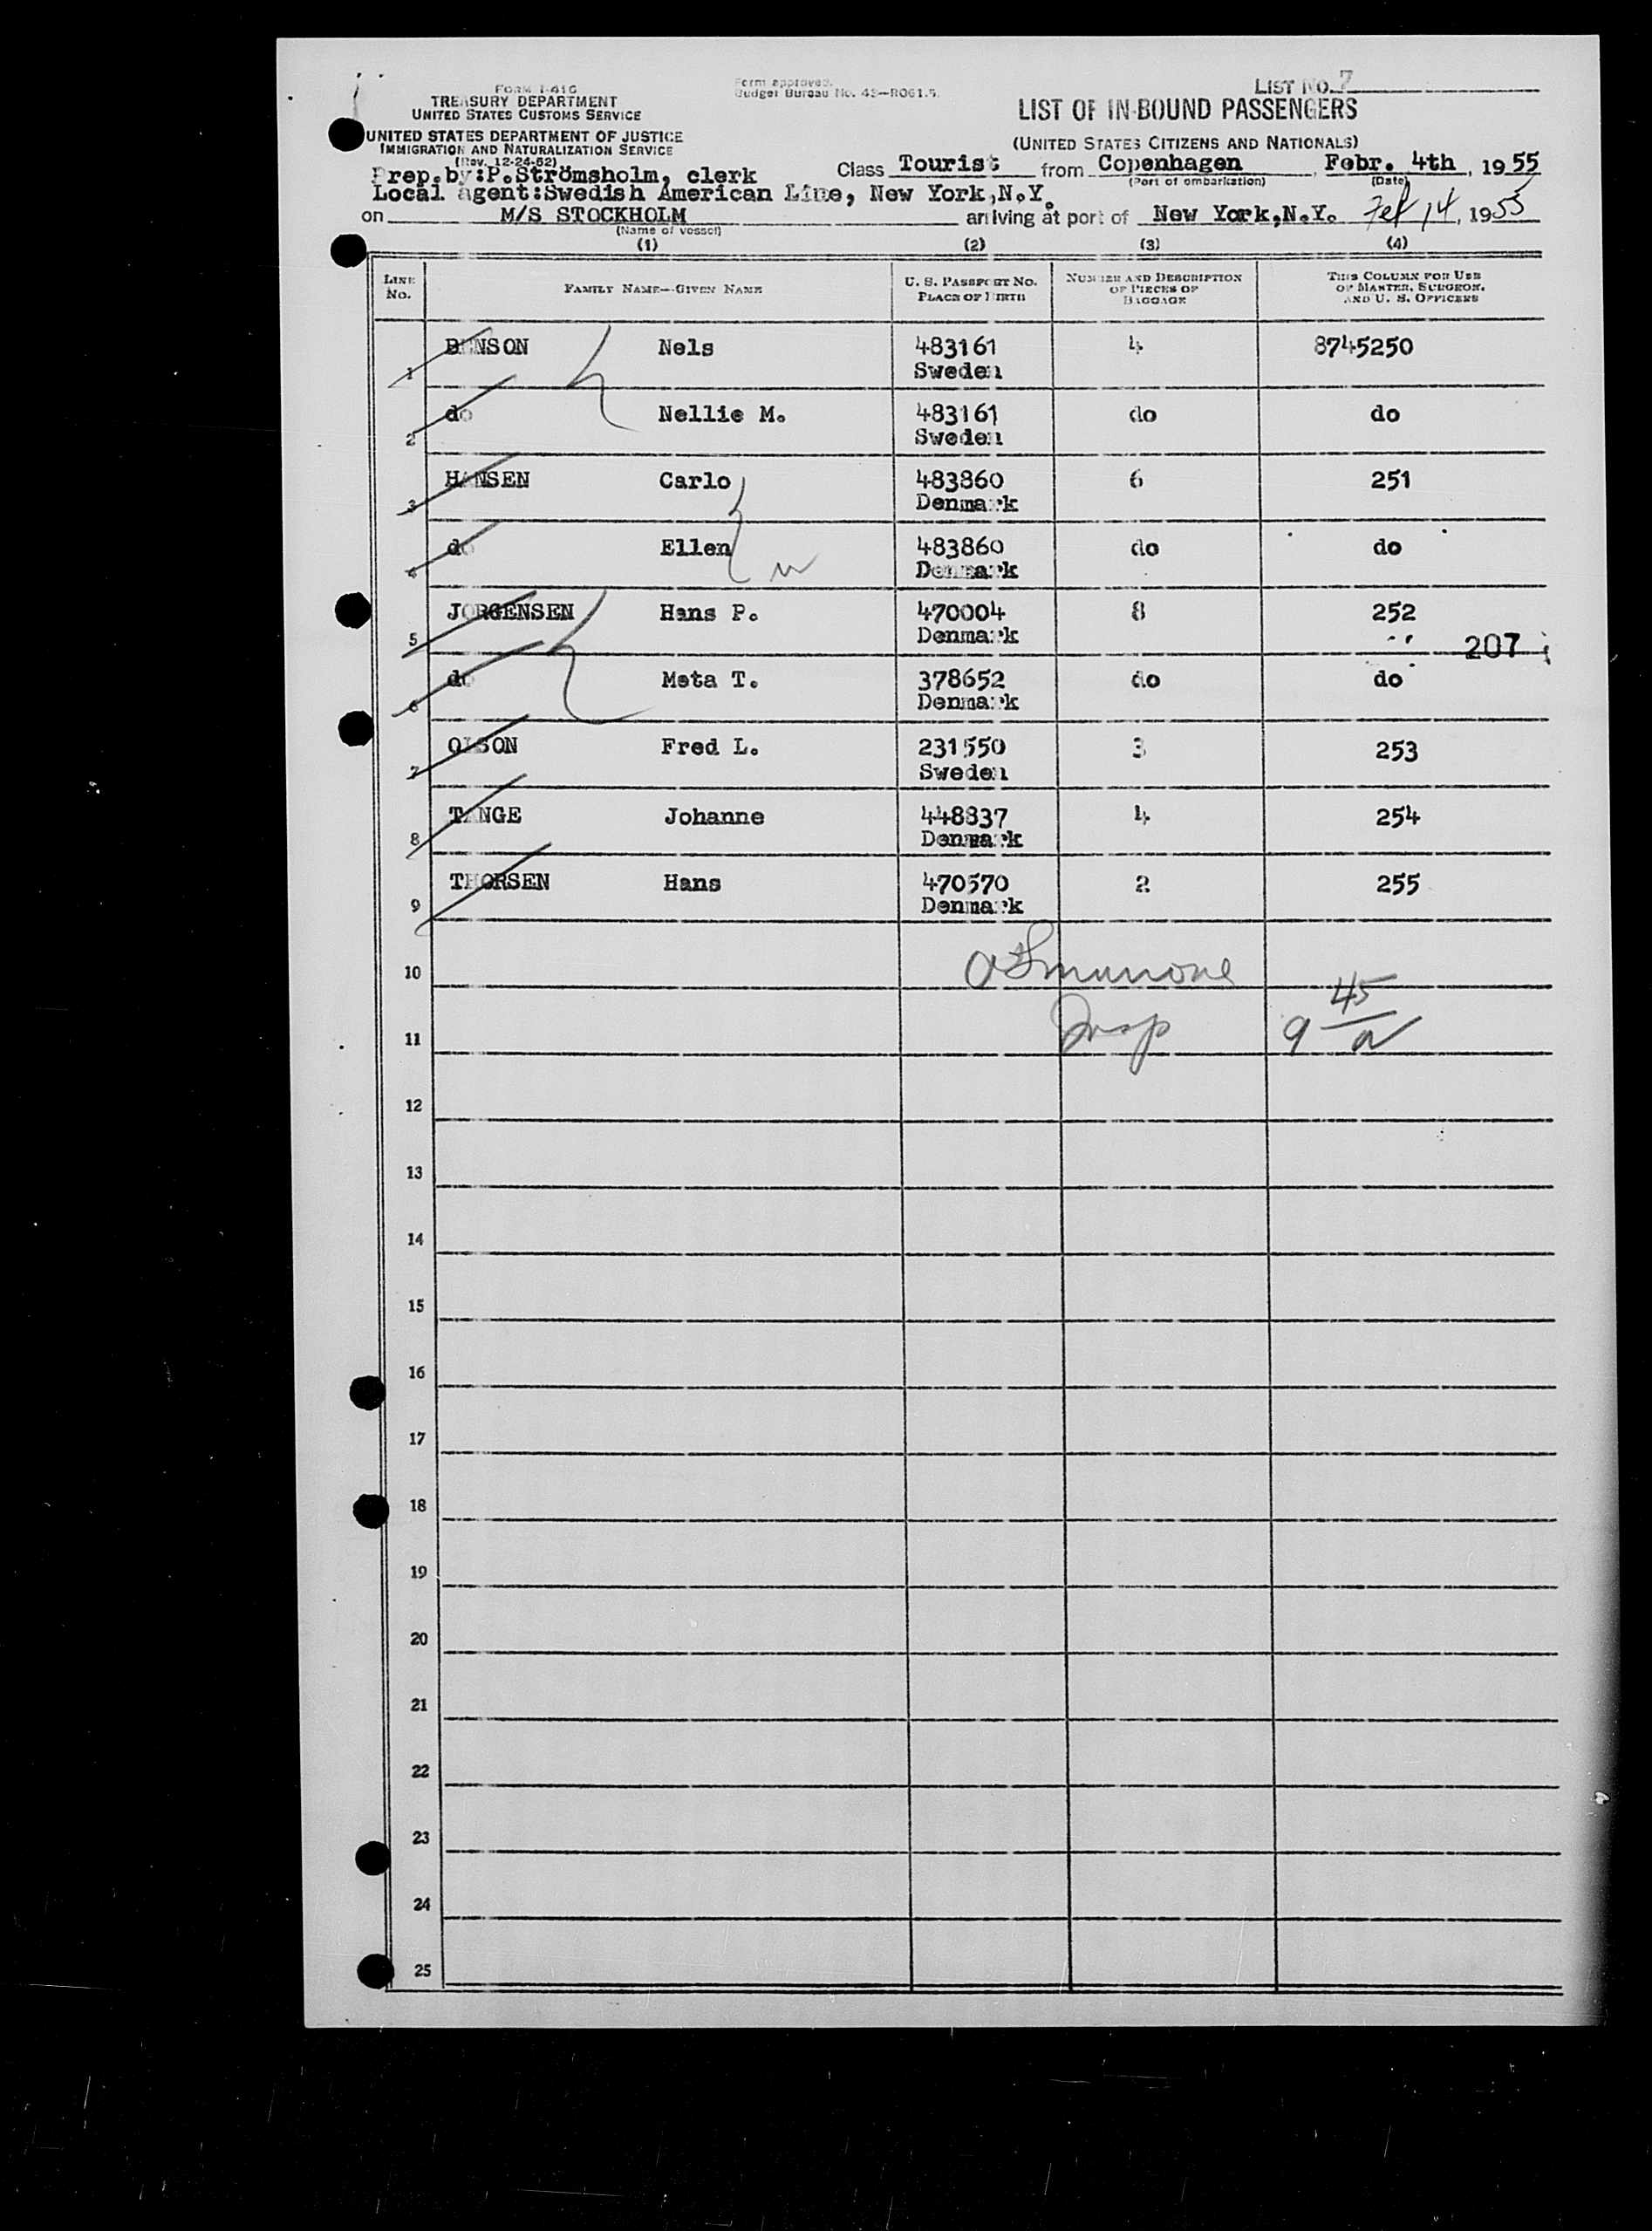 Form I-416
TREASURY DEPARTMENT
UNITED STATES CUSTOMS SERVICE
UNITED STATES DEPARTMENT OF JUSTICE
IMMIGRATION AND NATURALIZATION SERVICE
(Rev. 12-24-52)
Form approved.
Budget Bureau No. 43—R061.5.
LIST NO. 7
LIST OF IN-BOUND PASSENGERS
(UNITED STATES CITIZENS AND NATIONALS)
Prep.by:P.Strömsholm, clerk
Class Tourist from Copenhagen, Febr. 4th, 1955
(Port of embarkation) (Date)
Local agent:Swedish American Line, New York,N.Y.
on M/S STOCKHOLM arriving at port of New York,N.Y. Feb 14, 1955
(Name of vessel)
(1) (2) (3) (4)
LINE No. FAMILY NAME—GIVEN NAME U. S. PASSPORT NO. PLACE OF BIRTH NUMBER AND DESCRIPTION OF PIECES OF BAGGAGE THIS COLUMN FOR USE OF MASTER, SURGEON, AND U. S. OFFICERS
1 BENSON Nels 483161 4 8745250
Sweden
2 do Nellie M. 483161 do do
Sweden
3 HANSEN Carlo 483860 6 251
Denmark
4 do Ellen 483860 do do
Denmark
5 JORGENSEN Hans P. 470004 8 252
Denmark
207
6 do Meta T. 378652 do do
Denmark
7 OLSON Fred L. 231550 3 253
Sweden
8 TANGE Johanne 448837 4 254
Denmark
9 THORSEN Hans 470570 2 255
Denmark
10
11 Insp 9 45/a
12
13
14
15
16
17
18
19
20
21
22
23
24
25